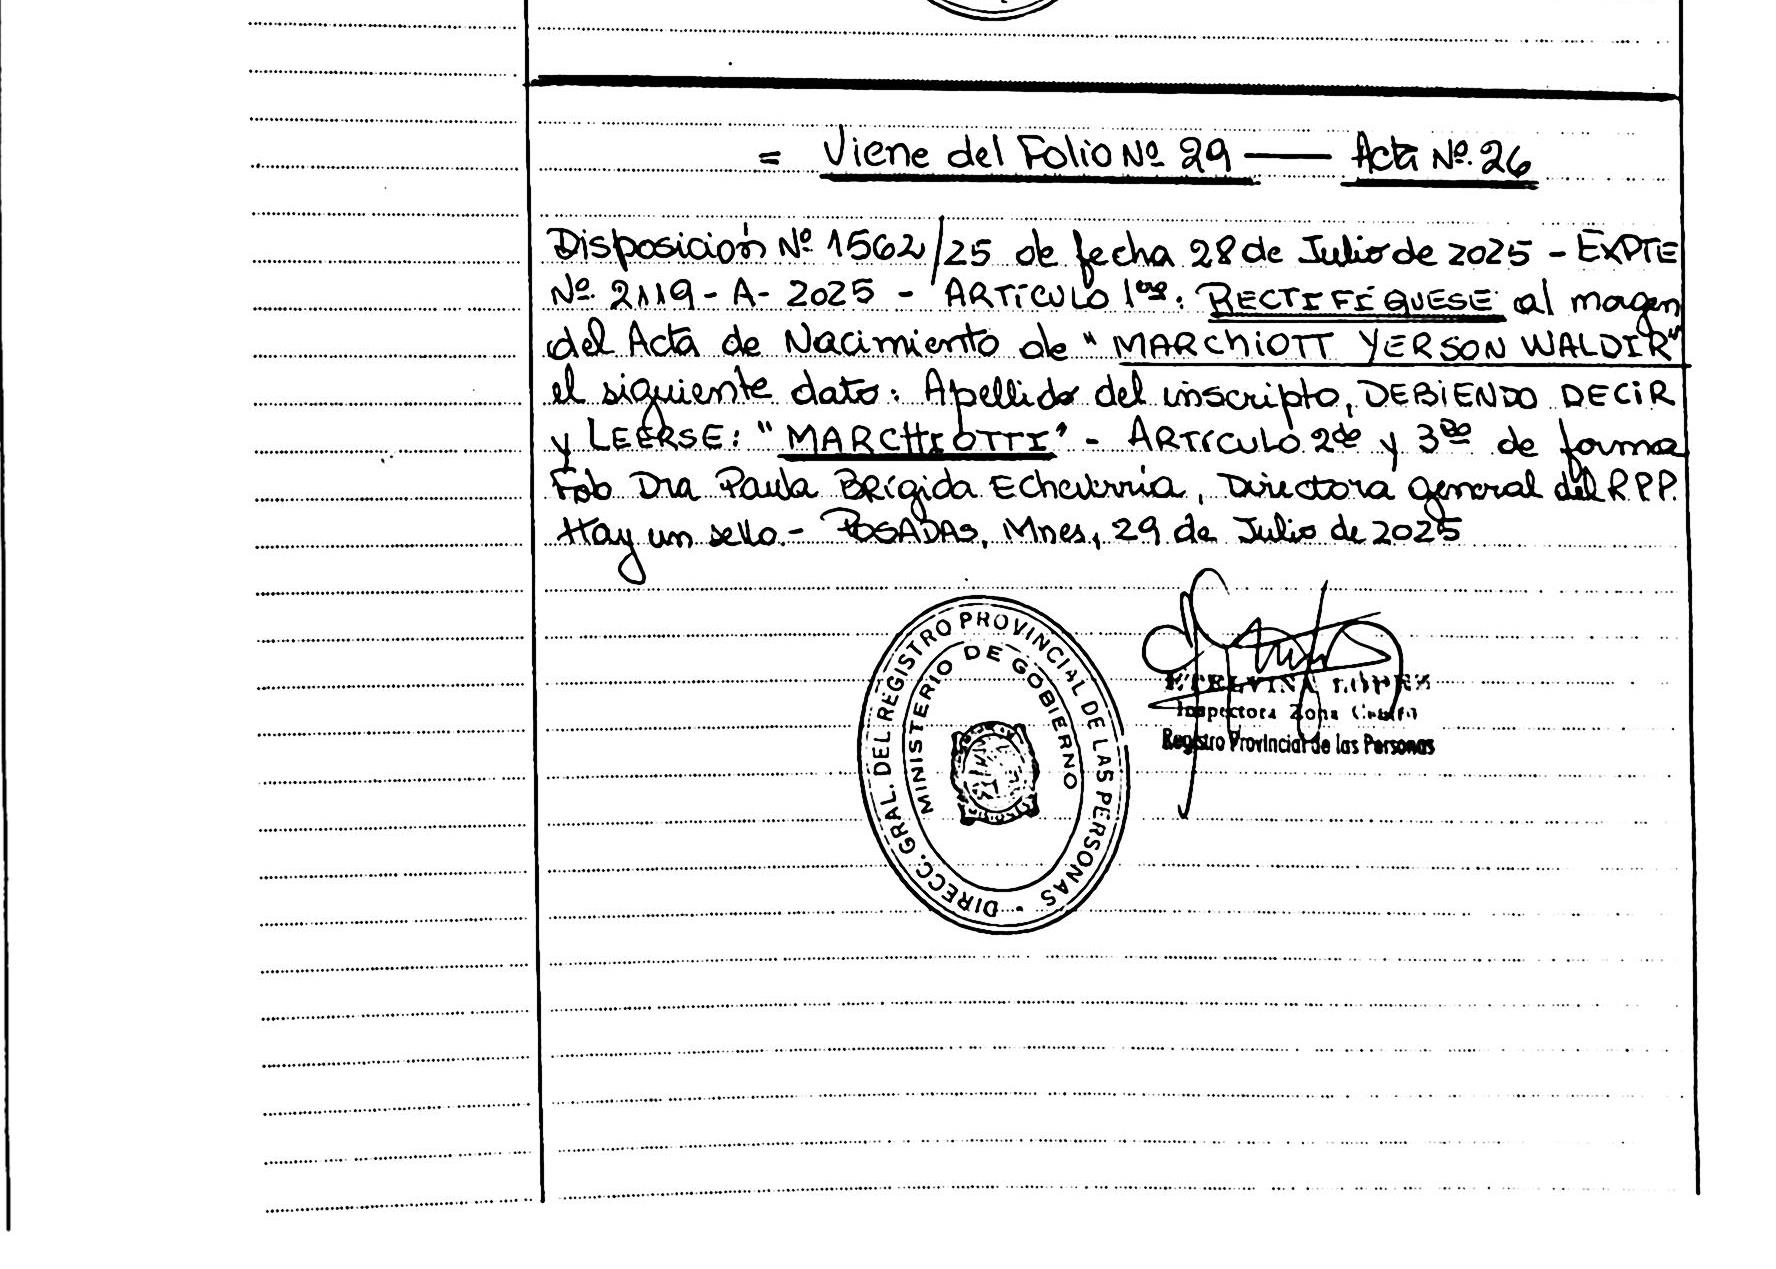 = Viene del Folio Nº 29 —— Acta Nº. 26
Disposición Nº 1562/25 de fecha 28 de Julio de 2025 - EXPTE
Nº. 2119 - A - 2025 - ARTÍCULO 1ero: RECTIFÍQUESE al margen
del Acta de Nacimiento de "MARChiOTT YERSON WALDIR"
el siguiente dato: Apellido del inscripto, DEBIENDO DECIR
y LEERSE: "MARCHIOTTI" - ARTÍCULO 2do y 3ro de forma
Fdo Dra Paula Brígida Echeverría, Directora general del R.P.P.
Hay un sello.- POSADAS, Mnes, 29 de Julio de 2025
DIRECC. GRAL. DEL REGISTRO PROVINCIAL DE LAS PERSONAS -
MINISTERIO DE GOBIERNO
ETELVINA LOPEZ
Inspectora Zona Centro
Registro Provincial de las Personas